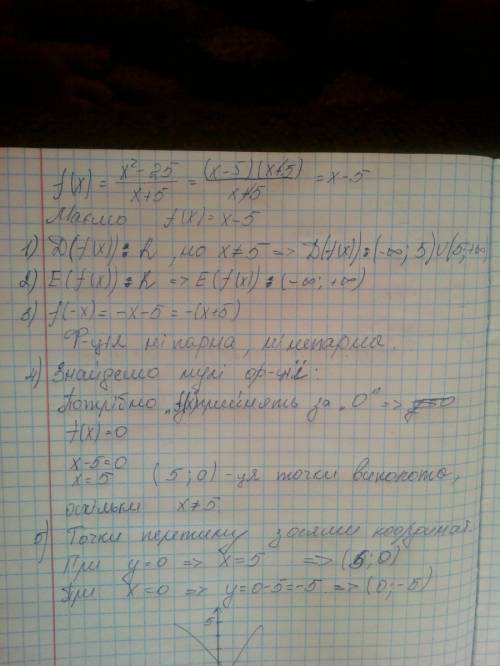 f(x) = x²-25/x+5 = (x-5)(x+5)/x+5 = x-5
Маємо f(x) = x-5
1) D(f(x)): R, но x≠5 => D(f(x)): (-∞; 5)U(5;+∞
2) E(f(x)): R => E(f(x)): (-∞; +∞)
3) f(-x) = -x-5 = -(x+5)
Ф-ція ні парна, ні непарна.
4) Знайдемо нулі ф-ції:
Потрібно "f(x)" прийнять за "0" => y=0
f(x) = 0
x-5=0
x=5 (5;0) - ця точка виколота,
оскільки x≠5
5) Точки перетину з осями координат.
При y=0 => x=5 => (5;0)
При x=0 => y=0-5=-5 => (0;-5)
5